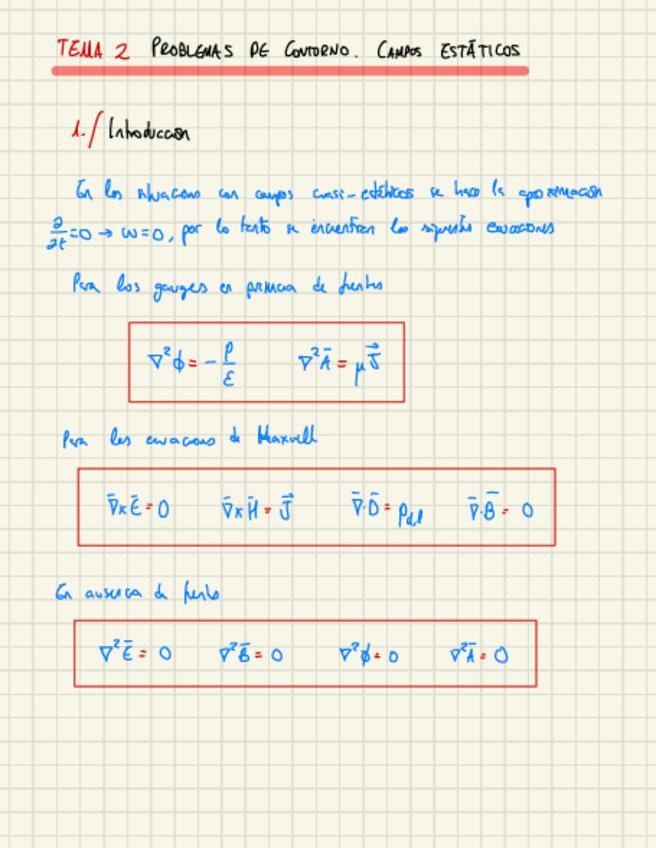 TEMA 2 PROBLEMAS DE CONTORNO. CAMPOS ESTÁTICOS
1./ Introducción
En las situaciones con campos cuasi-estáticos se hace la aproximación
∂/∂t=0 → ω=0, por lo tanto se encuentran las siguientes ecuaciones
Para los gauges en presencia de fuentes
∇²ϕ = - ρ/ε ∇²Ā = μJ⃗
Para las ecuaciones de Maxwell
∇̄×Ē = 0 ∇̄×H̄ = J⃗ ∇̄·D̄ = ρdel ∇̄·B̄ = 0
En ausencia de fuentes
∇²Ē = 0 ∇²B̄ = 0 ∇²ϕ = 0 ∇²Ā = 0